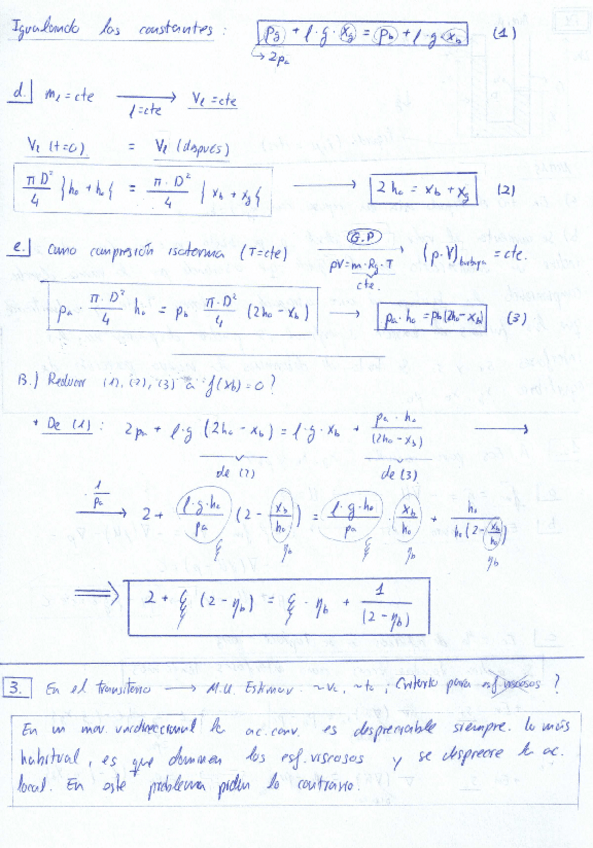 Igualando las constantes: p_g + ρ·g·x_g = p_b + ρ·g·x_b (1)
→ 2p_a
d. m_l = cte → V_l = cte
ρ = cte
V_l (t=0) = V_l (después)
πD²/4 {h₀ + h₀} = π·D²/4 {x_b + x_g} → 2h₀ = x_b + x_g (2)
e. Como compresión isoterma (T=cte) G.P → (p·V)burbuja = cte.
pV = m·Rg·T
cte.
p_a · π·D²/4 h₀ = p_b · π·D²/4 (2h₀ - x_b) → p_a·h₀ = p_b(2h₀ - x_b) (3)
B.) Reducir (1), (2), (3) a f(x_b) = 0?
+ De (1): 2p_a + ρ·g (2h₀ - x_b) = ρ·g·x_b + p_a·h₀/(2h₀ - x_b) →
de (2) de (3)
·1/p_a → 2 + ρ·g·h₀/p_a (2 - x_b/h₀) = ρ·g·h₀/p_a · x_b/h₀ + h₀/h₀(2 - x_b/h₀)
ξ η_b ξ η_b η_b
⟹ 2 + ξ (2 - η_b) = ξ · η_b + 1/(2 - η_b)
3. En el transitorio → M.U. Estimar ~v_c, ~t_c; Criterio para esf viscosos?
En un mov. unidireccional la ac. conv. es despreciable siempre. lo más
habitual, es que dominen los esf. viscosos y se desprecie la ac.
local. En este problema piden lo contrario.